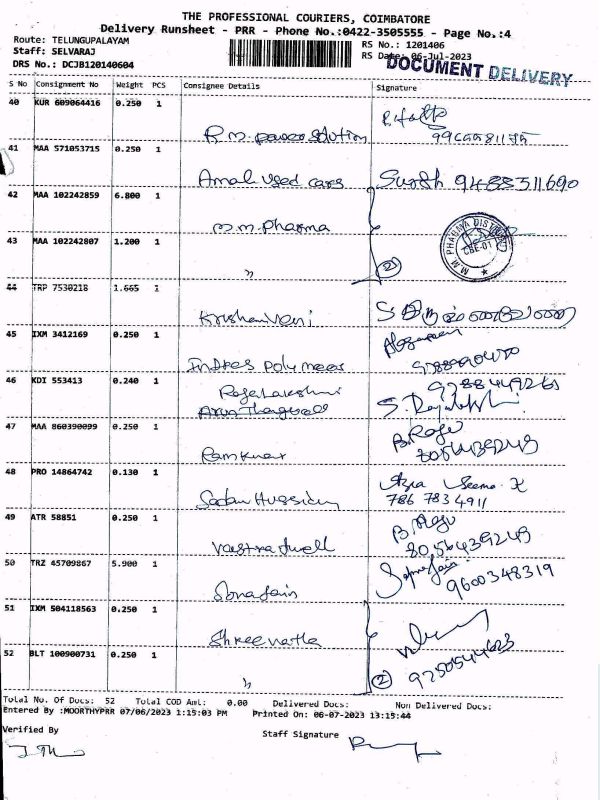 THE PROFESSIONAL COURIERS, COIMBATORE
Delivery Runsheet - PRR - Phone No.:0422-3505555 - Page No.:4
Route: TELUNGUPALAYAM
RS No.: 1201406
Staff: SELVARAJ
RS Date: 06-Jul-2023
DRS No.: DCJB120140604
DOCUMENT DELIVERY
S No Consignment No Weight PCS Consignee Details Signature
40 KUR 609064416 0.250 1
R.m. power solution
41 MAA 571053715 0.250 1
Amal used cars Suresh 9488511690
42 MAA 102242859 6.800 1
m.m. pharma
M.M PHARMA DISTRIBUT
CBE-01
43 MAA 102242807 1.200 1
" 2
44 TRP 7530218 1.665 1
Krishnaveni
45 IXM 3412169 0.250 1
Indres polymers
46 KDI 553413 0.240 1 9788449261
Rajalakshmi
S. Rajalakshmi
47 MAA 860390099 0.250 1 B. Raju
Ramkumar
48 PRO 14864742 0.130 1
Sadam Hussain 786 783 4911
49 ATR 58851 0.250 1 B. Raju
Vastra dwell 8056439249
50 TRZ 45709867 5.900 1
Sona Jain 9600348319
51 IXM 504118563 0.250 1
Shreenatha
52 BLT 100900731 0.250 1
" 2
Total No. Of Docs: 52 Total COD Amt: 0.00 Delivered Docs: Non Delivered Docs:
Entered By :MOORTHYPRR 07/06/2023 1:15:03 PM Printed On: 06-07-2023 13:15:44
Verified By Staff Signature